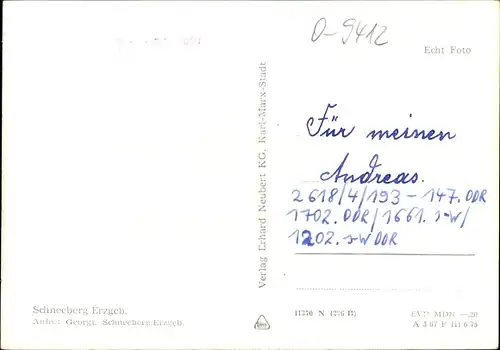 O-9412
Echt Foto
Für meinen
Andreas.
2618/4/193 - 147. DDR
1702. DDR/1661. s-w/
1202. s-w DDR
Verlag Erhard Neubert KG, Karl-Marx-Stadt
Schneeberg Erzgeb.
Aufn.: Georgi, Schneeberg/Erzgeb.
11270 N
EVP MDN —.20
A 3/67 P